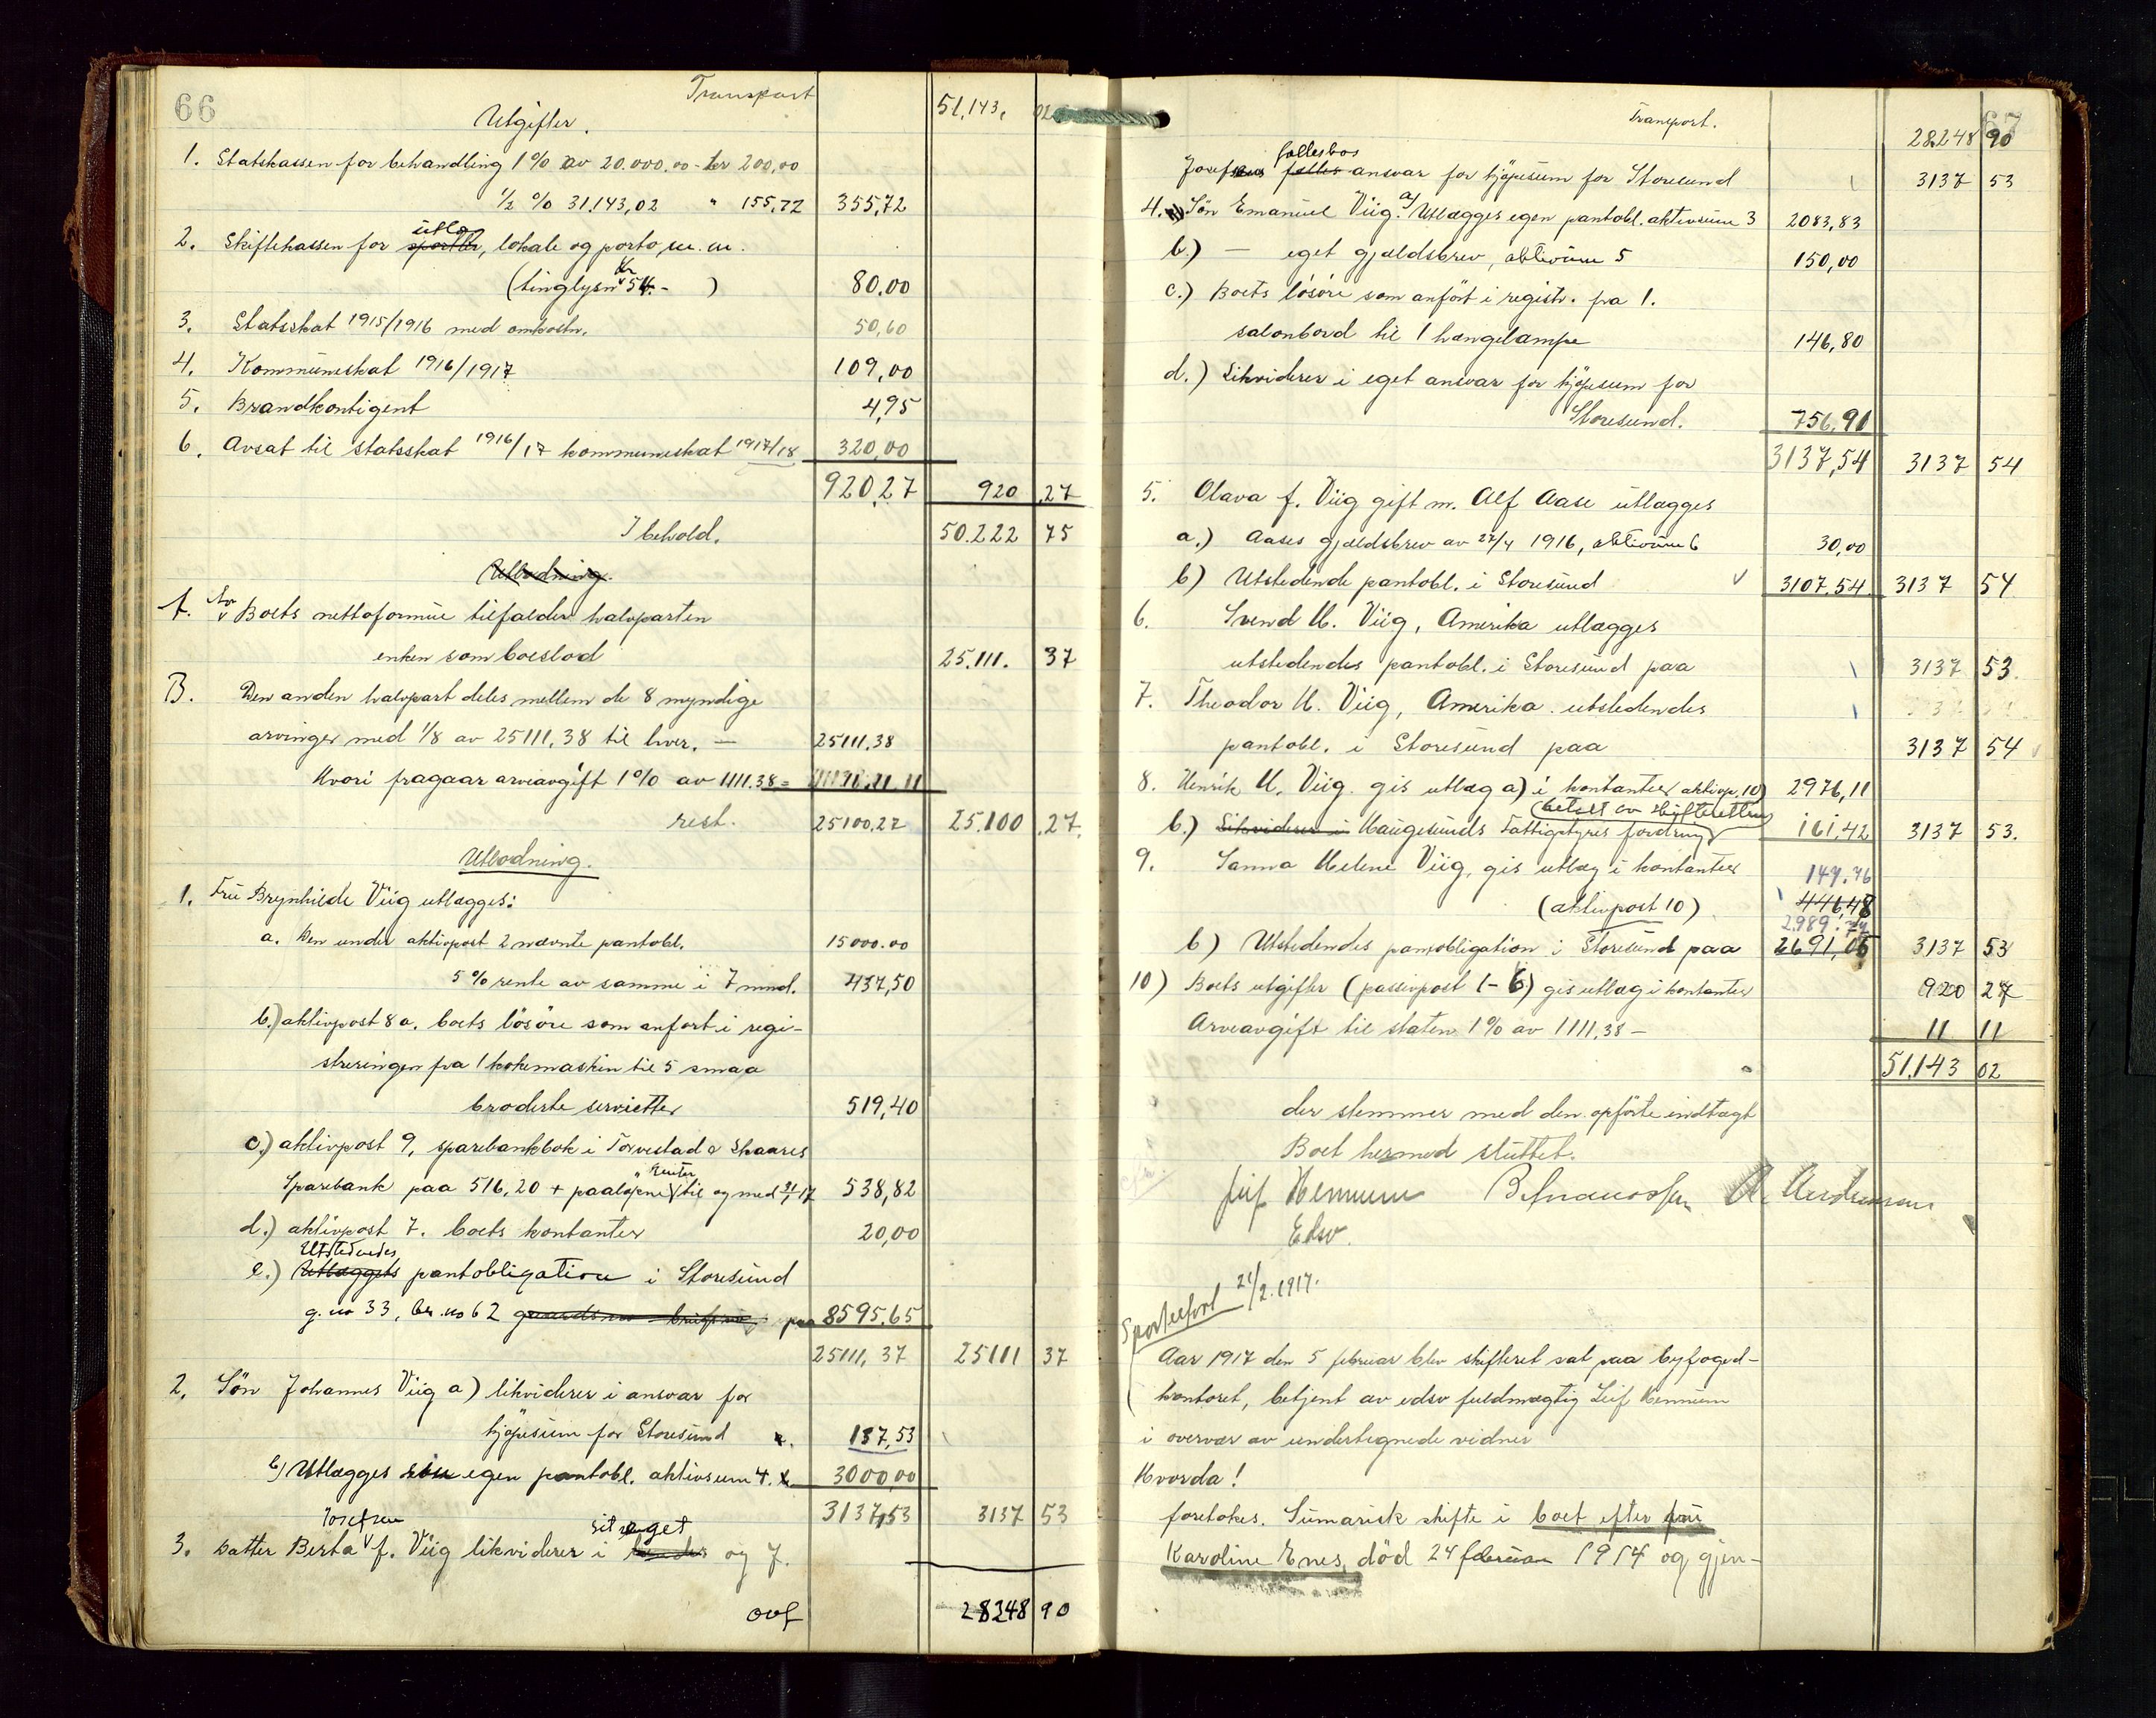 66
Transport 51,143, 02
Utgifter.
1. Statskassen for behandling 1% av 20.000.00 - kr 200,00
1/2 % 31.143,02 " 155,72 355,72
utlæg
2. Skiftekassen for sportler, lokale og porto, m. m.
(tinglysn kr 54.- ) 80.00
3. Statsskat 1915/1916 med omkostn. 50,60
4. Kommuneskat 1916/1917 109,00
5. Brandkontigent 4,95
6. Avsat til statsskat 1916/17 kommuneskat 1917/18 320,00
920,27 920 ,27
I behold. 50.222 75
Utlodning.
A. Av Boets nettoformue tilfalder halvparten
enken som boeslod 25.111. 37
B. Den anden halvpart deles mellem de 8 myndige
arvinger med 1/8 av 25111,38 til hver. — 25111.38
Hvori fragaar arveavgift 1% av 1111.38 = 11.11
rest. 25100,27 25.100 .27.
Utlodning.
1. Fru Brynhilde Viig utlægges:
a. Den under aktivpost 2 nævnte pantobl. 15000.00
5% rente av samme i 7 mnd. 437,50
b.) aktivpost 8 a. boets lösöre som anfört i regi-
streringen fra 1 kokemaskin til 5 smaa
broderte servietter 519,40
c.) aktivpost 9, sparebankbok i Torvestad & Skaares
renter
Sparebank paa 516,20 + paaløpne til og med 31/1 17 538,82
d.) aktivpost 7. boets kontanter 20,00
Utstedendes
e.) Utlægges pantobligation i Storesund
g. no 33, br. no 62 paa 8595,65
25111, 37 25111 37
2. Sön Johannes Viig a) likviderer i ansvar for
kjöpesum for Storesund 137,53
b) Utlægges sin egen pantobl. aktivsum 4. 3000,00
3137,53 3137 53
Josefsen sit eget
3. Datter Berta f. Viig likviderer i og J.
ovf 28248 90
67
Transport. 28248 90
fællesbos
Josefsens fælles ansvar for kjöpesum for Storesund 3137 53
4. Sön Emanuel Viig. a) Utlægges egen pantobl. aktivsum 3 2083,83
b.) — eget gjældsbrev, aktivum 5 150,00
c.) Boets lösöre som anfört i registr. fra 1.
salonbord til 1 hængelampe 146,80
d.) Likviderer i eget ansvar for kjöpesum for
Storesund. 756,91
3137,54 3137 54
5. Olava f. Viig gift m. Alf Aase utlægges
a.) Aases gjældsbrev av 27/4 1916, aktivum 6 30,00
b) Utstedende pantobl. i Storesund 3107.54 3137 54
6. Svend H. Viig, Amerika utlægges
utstedendes pantobl. i Storesund paa 3137 53.
7. Theodor H. Viig, Amerika. utstedendes
pantobl. i Storesund paa 3137 54
8. Henrik H. Viig gis utlæg a) i kontanter aktivp. 10) 2976,11
(betalt av skifteretten)
b.) Likviderer i Haugesunds Fattigstyres fordring 161,42 3137 53.
9. Sanna Helene Viig, gis utlæg i kontanter 147.76
(aktivpost 10) 446,48
2989.77
b) Utstedendes pantobligation i Storesund paa 2691,05 3137 53
10) Boets utgifter (passivpost 1-6) gis utlæg i kontanter 920 27
Arveavgift til staten 1% av 1111,38 — 11 11
51.143 02
der stemmer med den opførte indtægt
Boet hermed sluttet.
Leif Hennum A. Andersen
Edsv.
Sportelført 21/2.1917.
Aar 1917 den 5 februar blev skifteret sat paa byfoged-
kontoret, betjent av edsv fuldmægtig Leif Hennum
i overvær av undertegnede vidner
Hvorda!
foretokes. Sumarisk skifte i boet efter fru
Karoline Enes, död 24 februar 1914 og gjen-